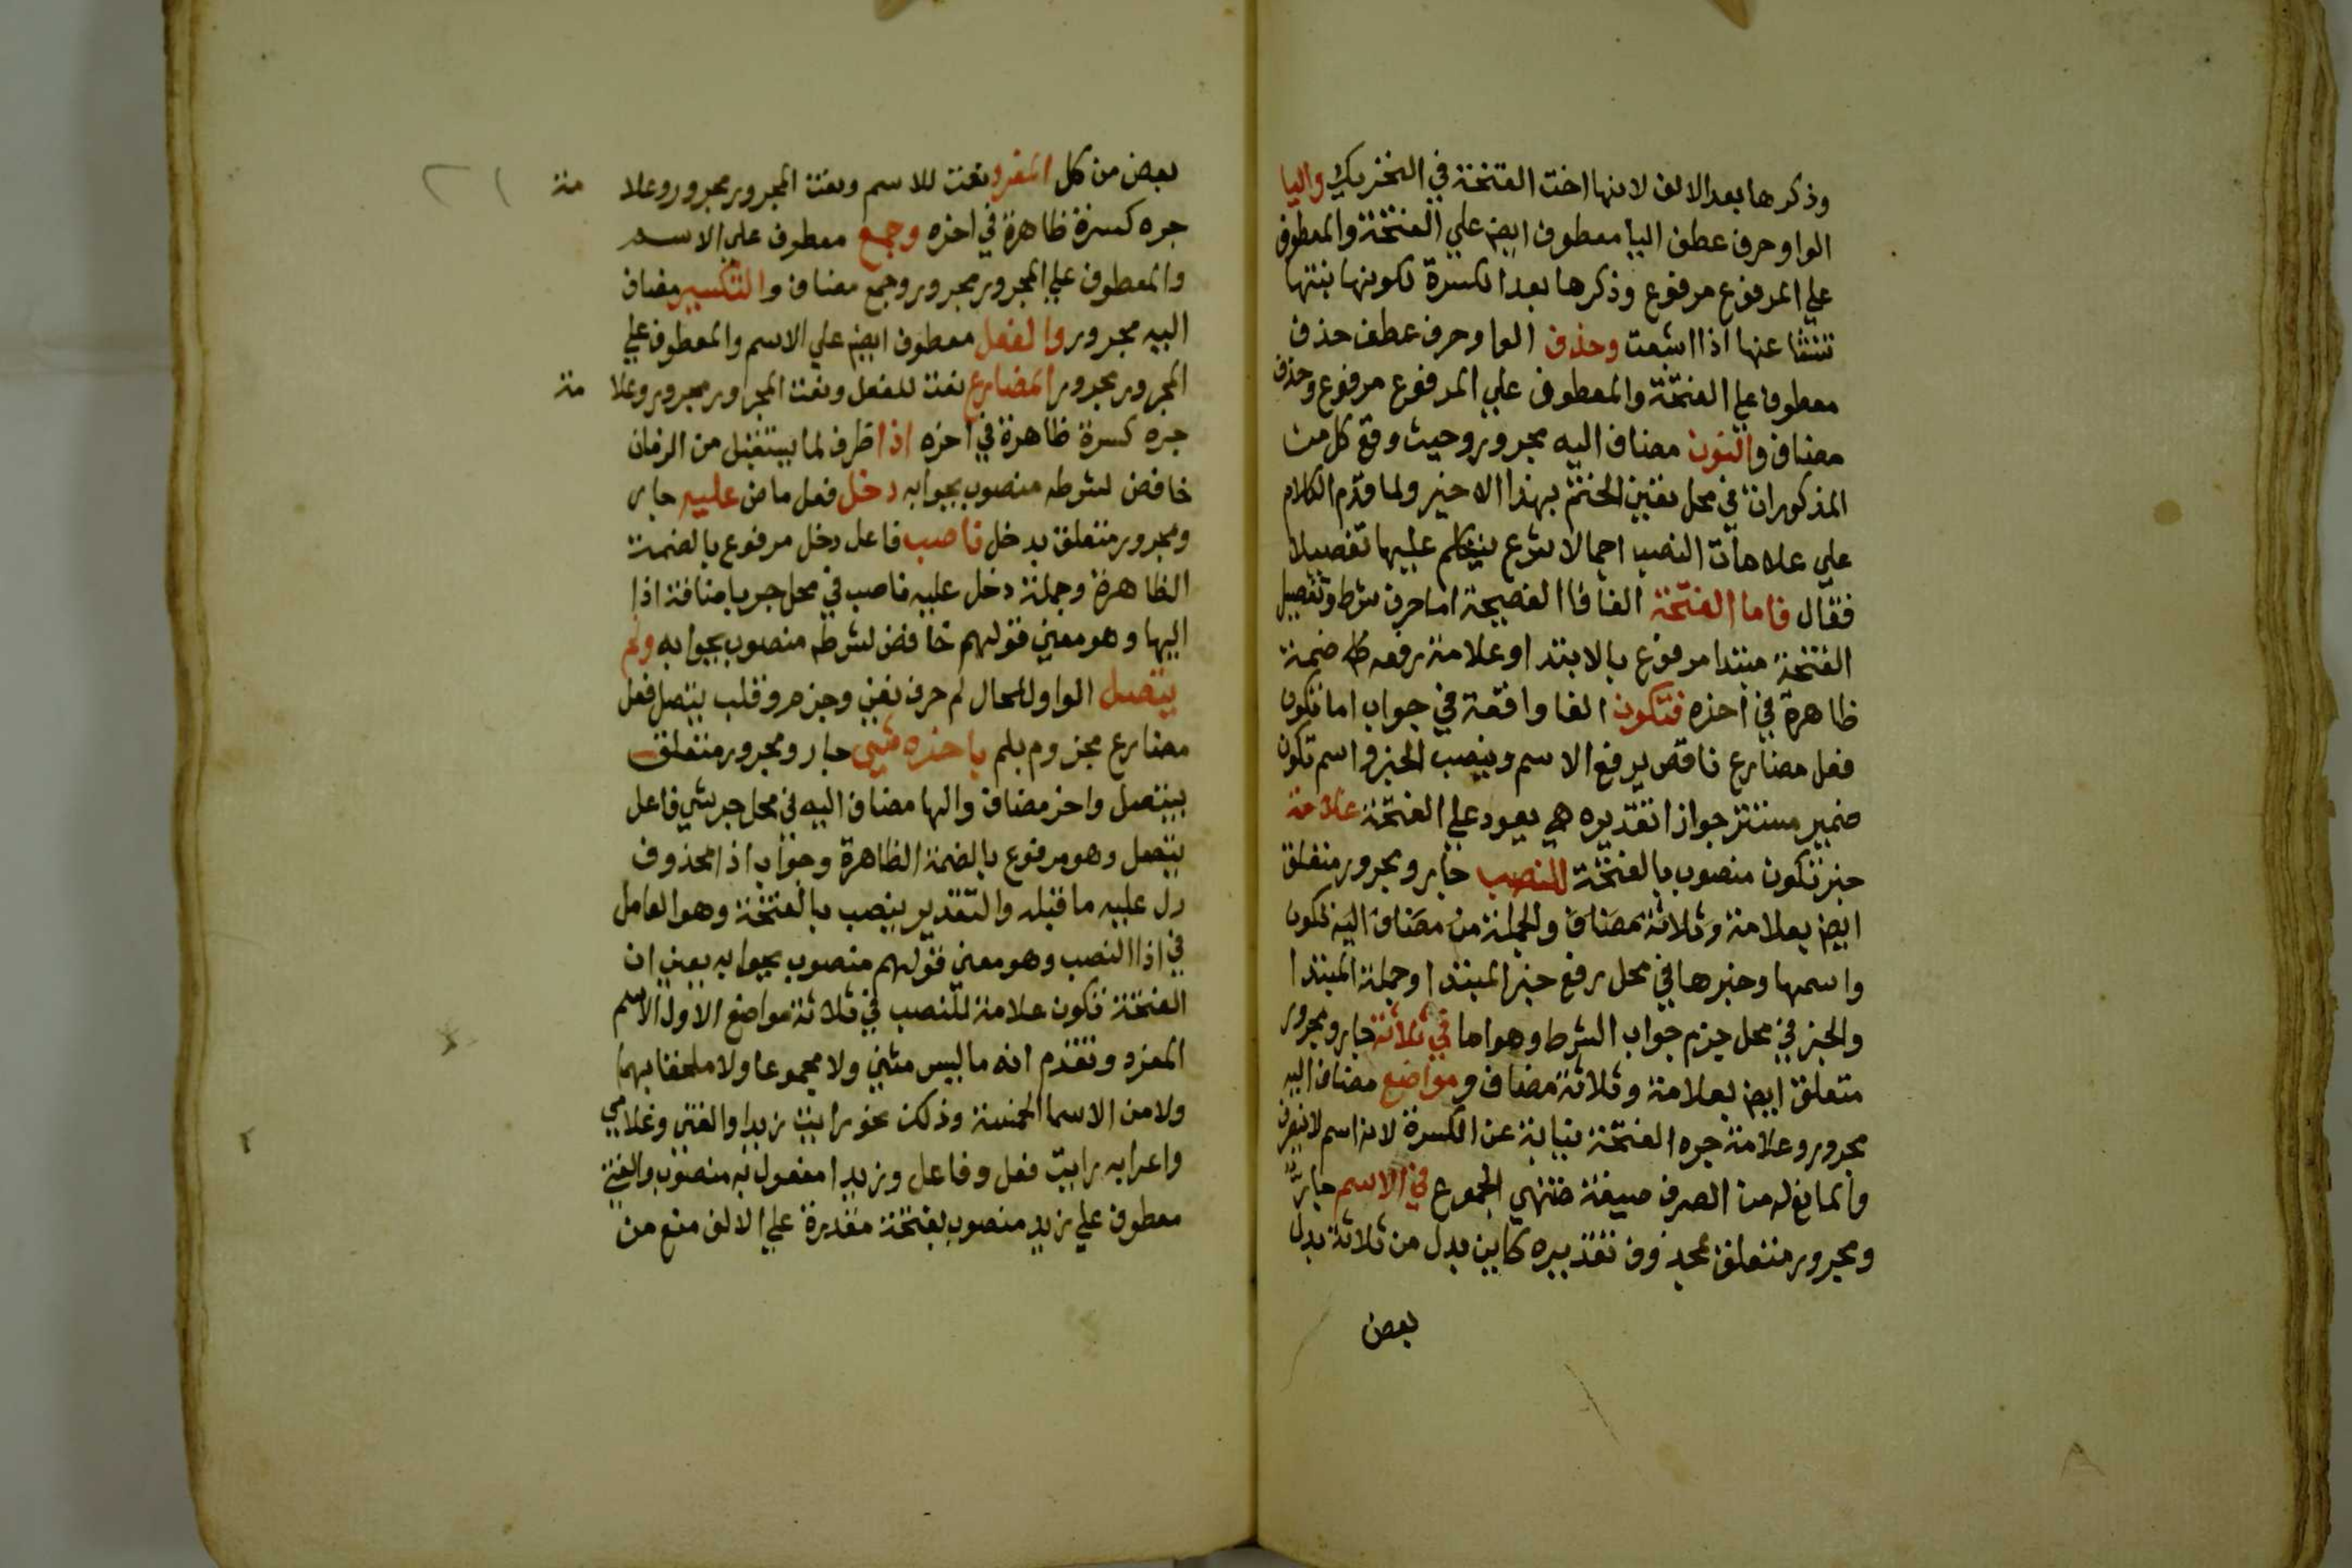 وذكرها بعد الالف لانها اخت الفتحة في التحريك واليا
الواو حرف عطف اليا معطوف ايض علي الفتحة والمعطوف
علي المرفوع مرفوع وذكرها بعد الكسرة لكونها بنتها
تنشا عنها اذا اشبعت وحذف الواو حرف عطف حذف
معطوف علي الفتحة والمعطوف علي المرفوع مرفوع وحذف
مضاف والنون مضاف اليه مجرور وحيث وقع كل من
المذكورات في محل تعين الختم بهذا الاخير ولما قدم الكلام
علي علامات النصب اجمالا شرع يتكلم عليها تفصيلا
فقال فاما الفتحة الفا فا الفصيحة اما حرف شرط وتفصيل
الفتحة مبتدا مرفوع بالابتدا وعلامة رفعه ضمة
ظاهرة في اخره فتكون الفا واقعة في جواب اما تكون
فعل مضارع ناقص يرفع الاسم وينصب الخبر واسم تكون
ضمير مستتر جوازا تقديره هي يعود علي الفتحة علامة
خبر تكون منصوب بالفتحة للنصب جار ومجرور متعلق
ايض بعلامة وثلاثة مضاف والجملة من مضاف اليه تكون
واسمها وخبرها في محل رفع خبر المبتدا وجملة المبتدا
والخبر في محل جزم جواب الشرط وهو اما في ثلاثة جار ومجرور
متعلق ايض بعلامة وثلاثة مضاف ومواضع مضاف اليه
مجرور وعلامة جره الفتحة نيابة عن الكسرة لانه اسم لا ينصرف
والمانع له من الصرف صيغة منتهي الجموع في الاسم جار
ومجرور متعلق بمحذوف تقديره كاين بدل من ثلاثة بدل
بعض
بعض من كل المفرد نعت للاسم ونعت المجرور مجرور وعلامة
جره كسرة ظاهرة في اخره وجمع معطوف علي الاسم
والمعطوف علي المجرور مجرور وجمع مضاف والتكسير مضاف
اليه مجرور والفعل معطوف ايض علي الاسم والمعطوف علي
المجرور مجرور المضارع نعت للفعل ونعت المجرور مجرور وعلامة
جره كسرة ظاهرة في اخره اذا ظرف لما يستقبل من الزمان
خافض لشرطه منصوب بجوابه دخل فعل ماض عليه جار
ومجرور متعلق بدخل ناصب فاعل دخل مرفوع بالضمة
الظاهرة وجملة دخل عليه ناصب في محل جر باضافة اذا
اليها وهو معني قولهم خافض لشرطه منصوب بجوابه ولم
يتصل الواو للحال لم حرف نفي وجزم وقلب يتصل فعل
مضارع مجزوم بلم باخره شي جار ومجرور متعلق
بيتصل واخر مضاف والها مضاف اليه في محل جر شي فاعل
يتصل وهو مرفوع بالضمة الظاهرة وجواب اذا محذوف
دل عليه ما قبله والتقدير ينصب بالفتحة وهو العامل
في اذا النصب وهو معني قولهم منصوب بجوابه يعني ان
الفتحة تكون علامة للنصب في ثلاثة مواضع الاول الاسم
المفرد وتقدم انه ما ليس مثني ولا مجموعا ولا ملحقا بهما
ولا من الاسما الخمسة وذلك نحو رايت زيدا والفتي وغلامي
واعرابه رايت فعل وفاعل وزيدا مفعول به منصوب والفتي
معطوف علي زيد منصوب بفتحة مقدرة علي الالف منع من